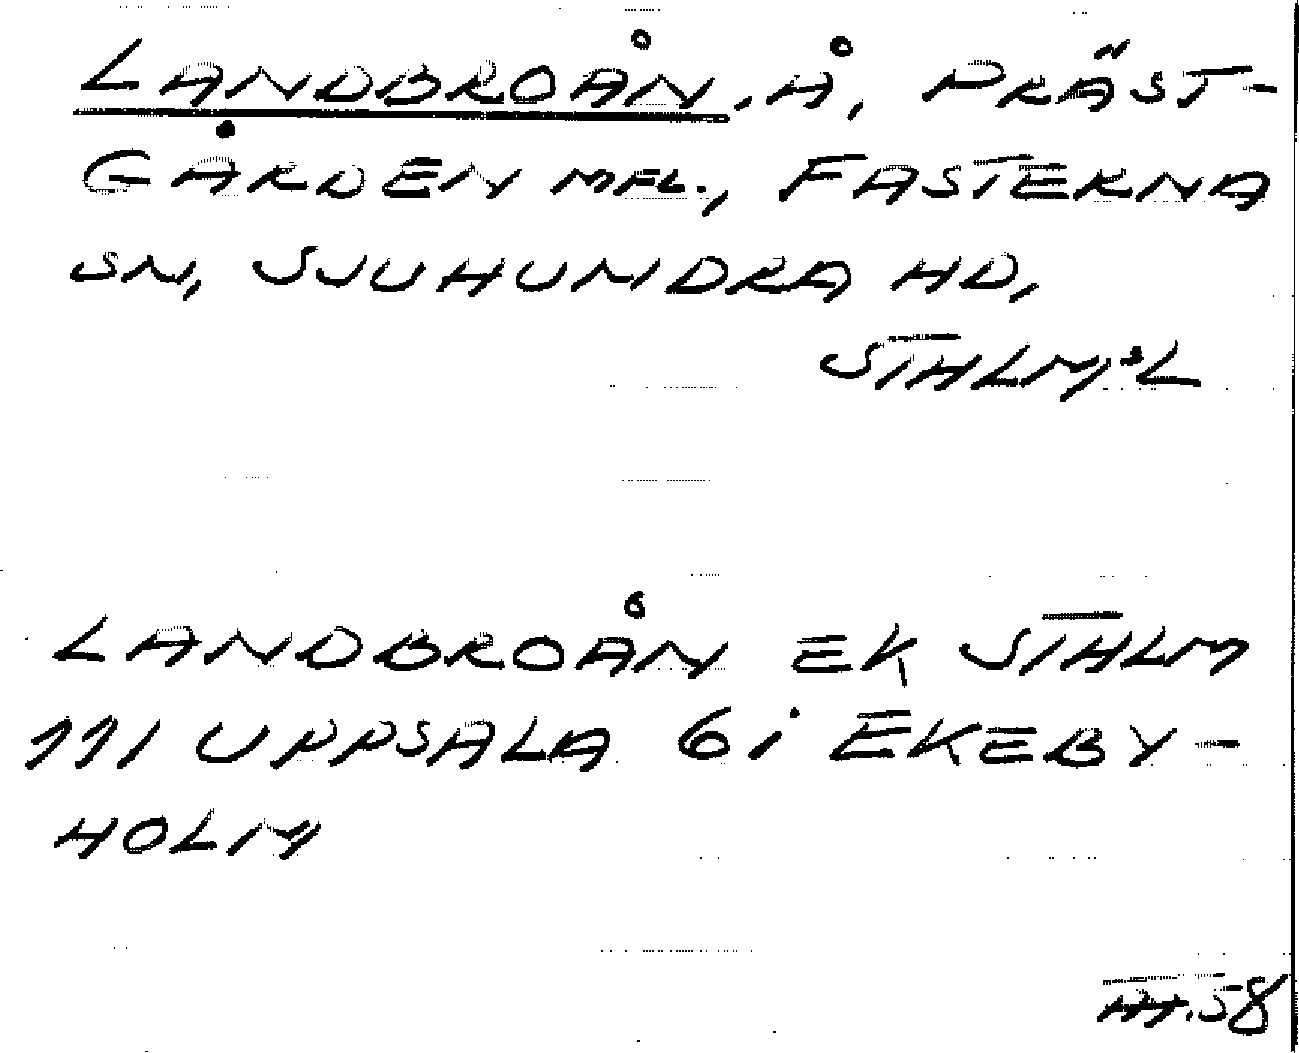 LANDBROÅN, Å, PRÄST-
GÅRDEN MFL., FASTERNA
SN, SJUHUNDRA HD,
STHLMS L
LANDBROÅN EK STHLM
111 UPPSALA 6i EKEBY-
HOLM
58